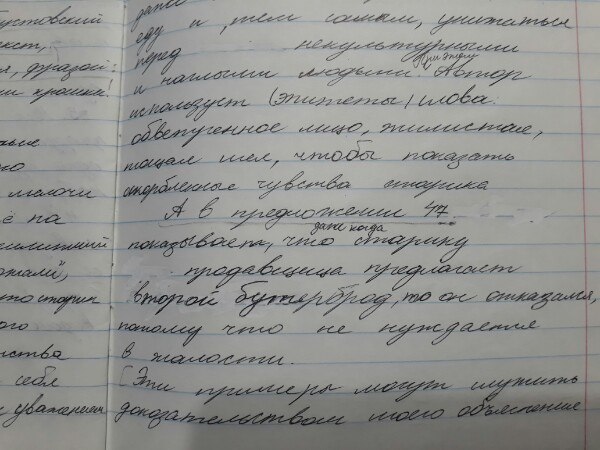 устовский
кст,
я, фразой:
ки крошки!
ные
мелочи
ё на
то старик
ого
себя
уважением
еду и , тем самым, унижаться
перед некультурными
и наглыми людьми. При этом Автор
использует (эпитеты) слова:
обветренное лицо, жилистая,
тощая шея, чтобы показать
оскорбленные чувства старика
А в предложении 47.
показывает, что даже когда старику
продавщица предлагает
второй бутерброд, то он отказался,
потому что не нуждается
в жалости.
[Эти примеры могут служить
доказательством моего объяснения